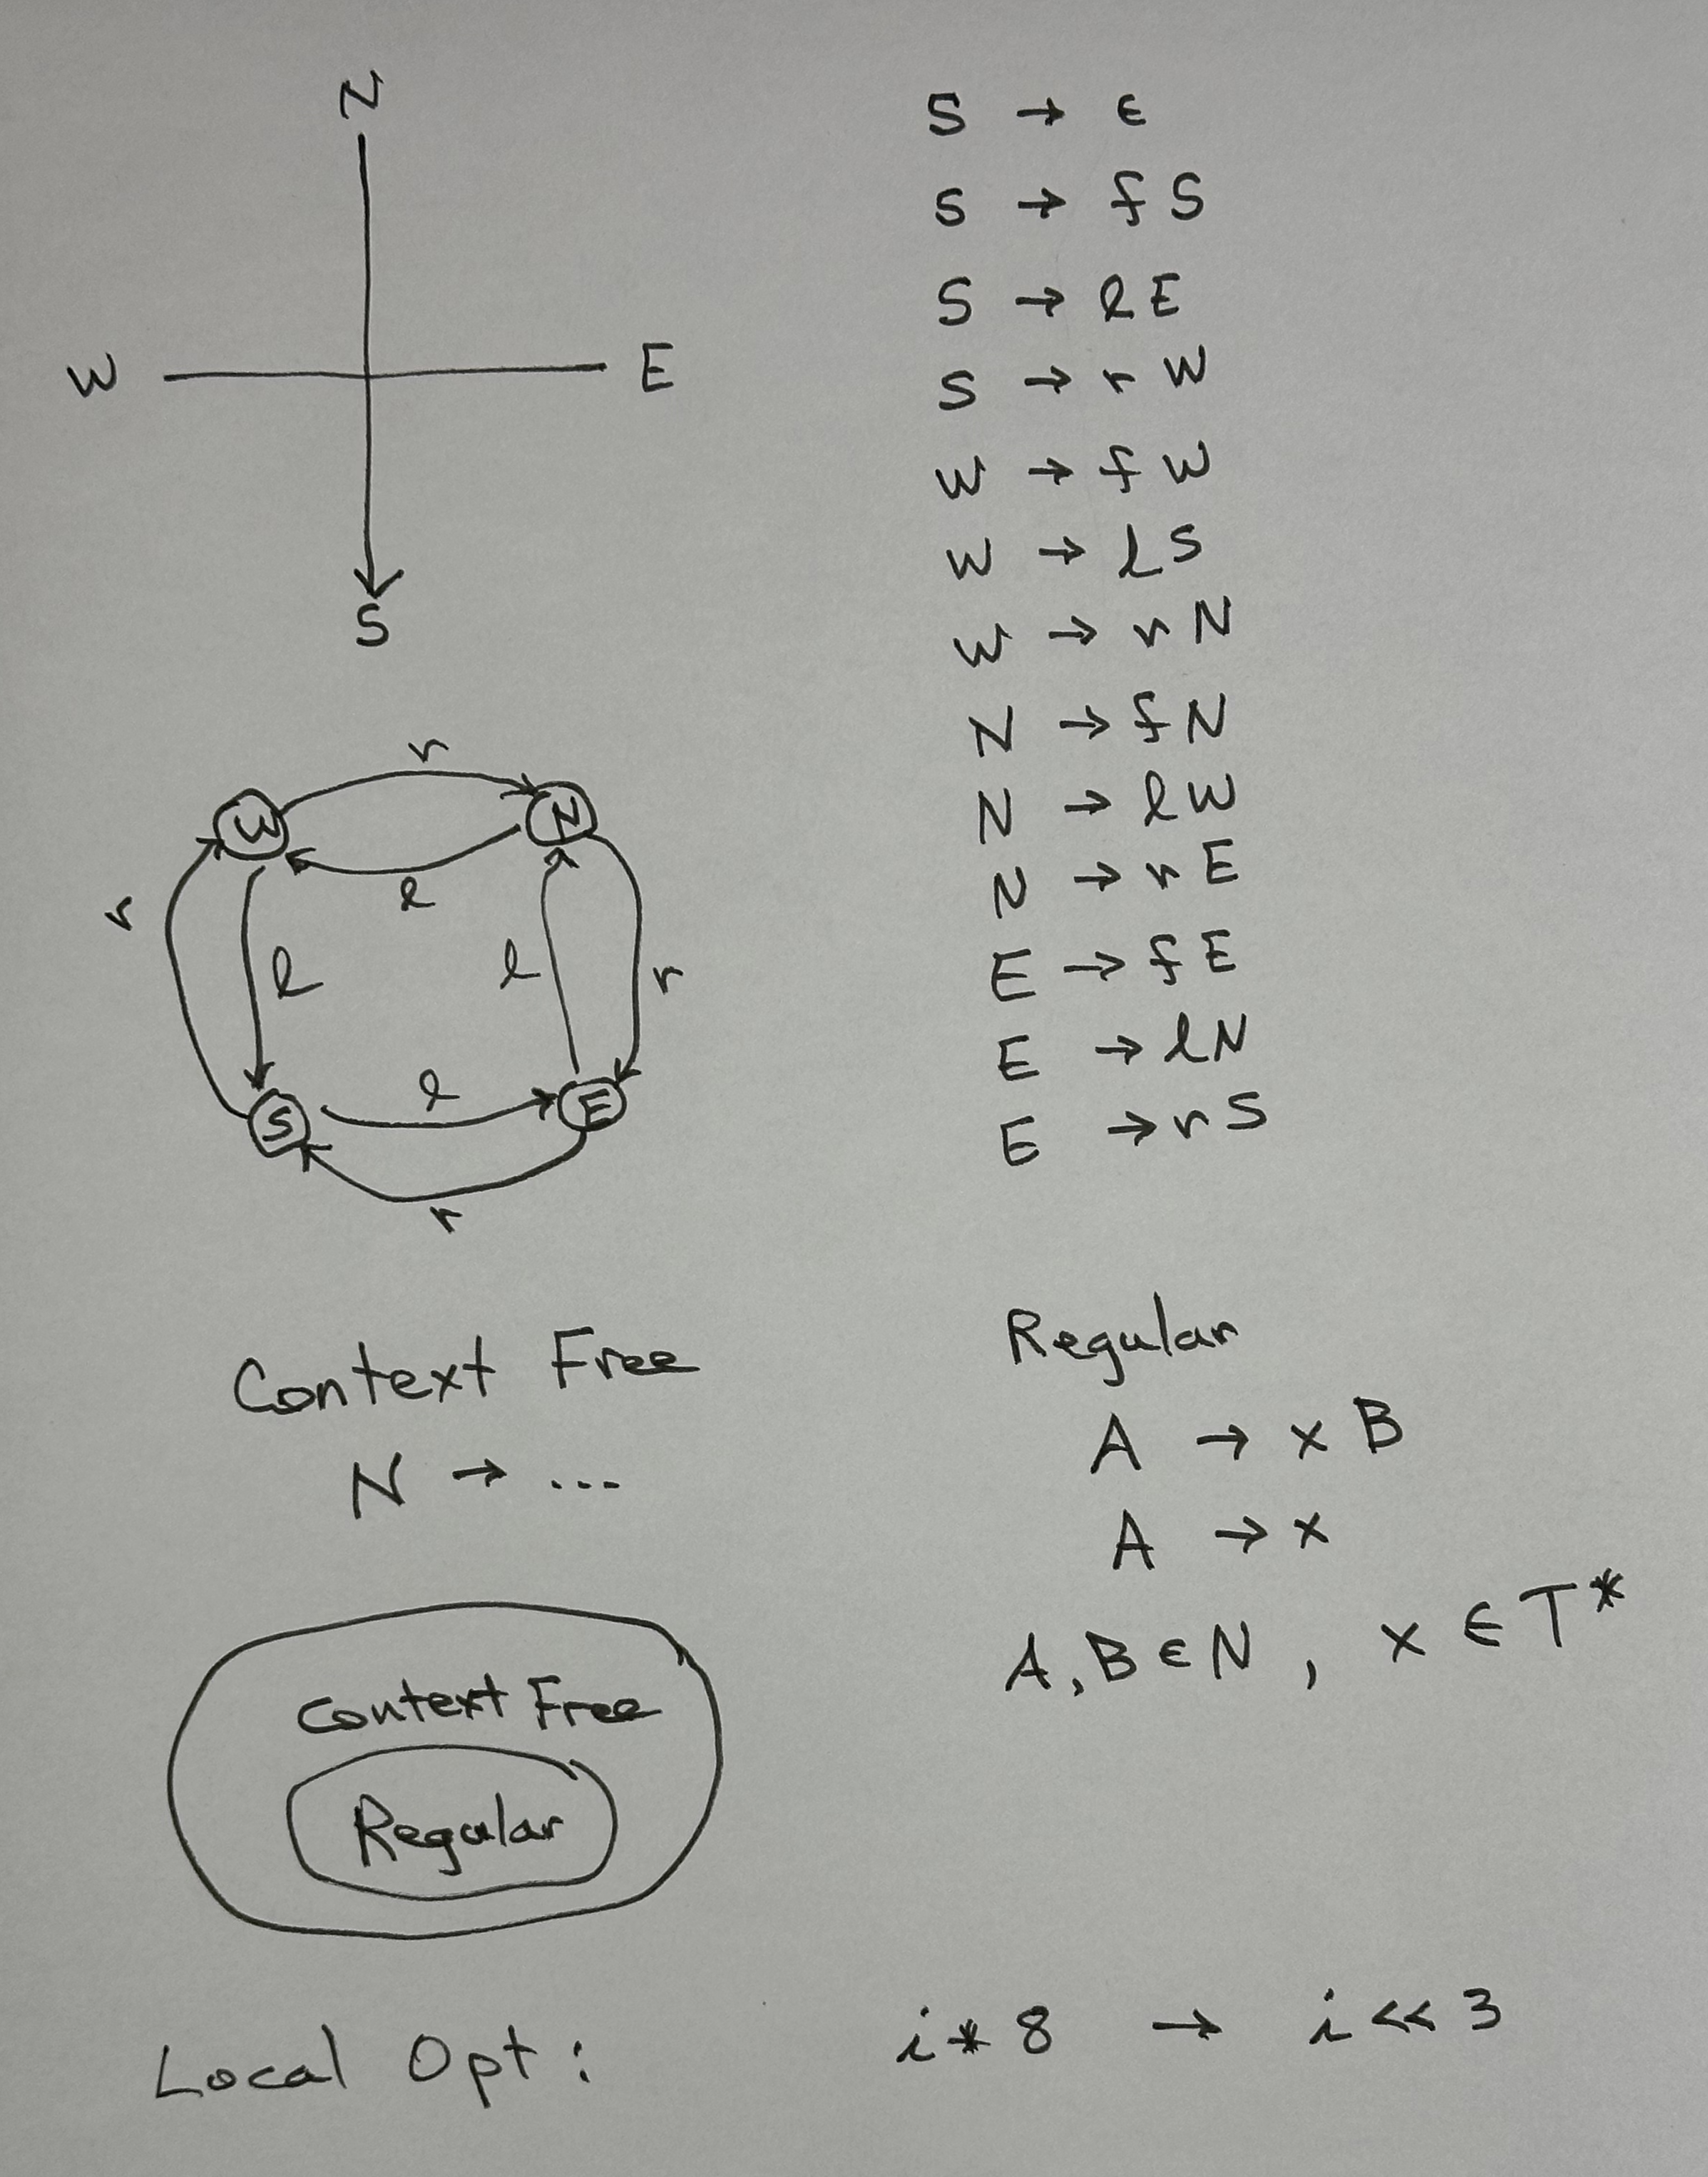 N
W E
S
S → ε
S → f S
S → l E
S → r W
W → f W
W → l S
W → r N
N → f N
N → l W
N → r E
E → f E
E → l N
E → r S
r
W N
l
r
l
l
r
l
S E
r
Context Free
N → ...
Regular
A → x B
A → x
A, B ∈ N, x ∈ T*
Context Free
Regular
Local Opt: i * 8 → i << 3